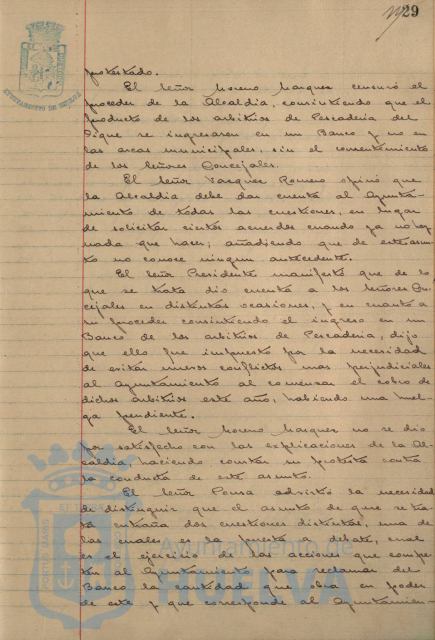 29
protestado.
El Señor Moreno Marquez censuró el
proceder de la Alcaldia, consintiendo que el
producto de los arbitrios de Pescaderia del
Dique se ingresaren en un Banco y no en
las arcas municipales, sin el consentimiento
de los Señores Concejales.
El Señor Vazquez Romero opinó que
la Alcaldia debe dar cuenta al Ayunta-
miento de todas las cuestiones, en lugar
de solicitar ciertos acuerdos cuando ya no hay
nada que hacer; añadiendo que de este asun-
to no conoce ningun antecedente.
El Señor Presidente manifestó que de lo
que se trata dio cuenta a los Señores Con-
cejales en distintas ocasiones, y en cuanto a
su proceder consintiendo el ingreso en un
Banco de los arbitrios de Pescaderia, dijo
que ello fue impuesto por la necesidad
de evitar nuevos conflictos mas perjudiciales
al Ayuntamiento al comenzar el cobro de
dichos arbitrios este año, habiendo una huel-
ga pendiente.
El Señor Moreno Marquez no se dió
por satisfecho con las explicaciones de la Al-
caldia, haciendo constar su protesta contra
la conducta de este asunto.
El Señor Ponsa advirtió la necesidad
de distinguir que el asunto de que se tra-
ta entraña dos cuestiones distintas, una de
las cuales es la puesta a debate, cual
es el ejercicio de las acciones que compe-
ten al Ayuntamiento para reclamar del
Banco la cantidad que obra en poder
de este y que corresponde al Ayuntamien-
AYUNTAMIENTO DE HUELVA
Ayuntamiento de
HUELVA